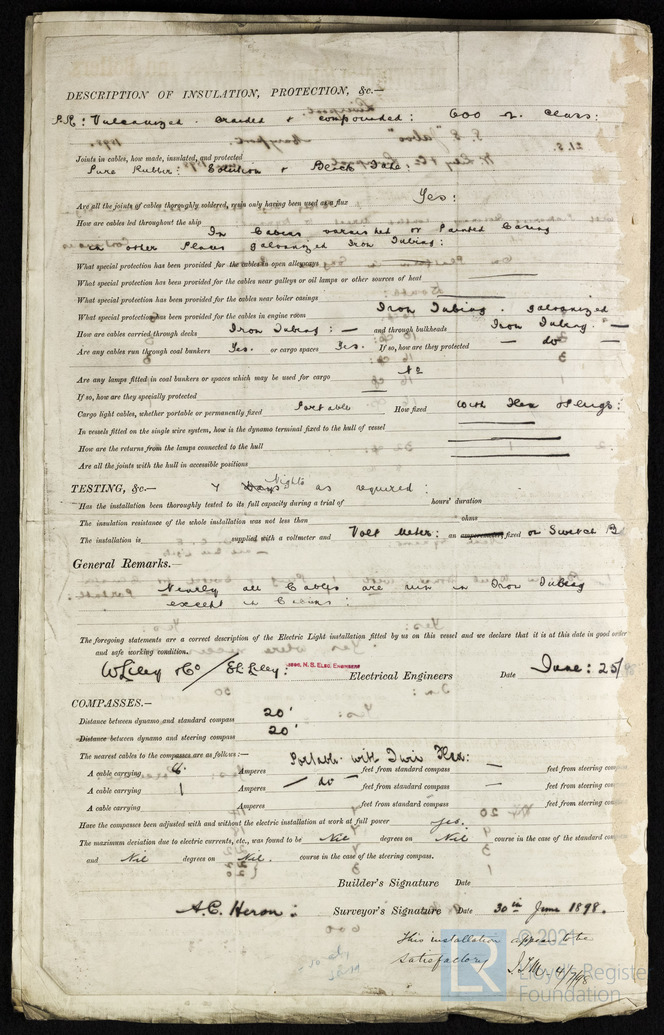 DESCRIPTION OF INSULATION, PROTECTION, &c.—
Vulcanized. Braided & compounded: 600 Ω. Class:
Joints in cables, how made, insulated, and protected
Pure Rubber: Solution & Black Tape:
Are all the joints of cables thoroughly soldered, resin only having been used as a flux Yes:
How are cables led throughout the ship In Cabins varnished or Painted Casing
in other Places galvanized Iron Tubing:
What special protection has been provided for the cables in open alleyways
What special protection has been provided for the cables near galleys or oil lamps or other sources of heat
What special protection has been provided for the cables near boiler casings
What special protection has been provided for the cables in engine room Iron Tubing. galvanized
How are cables carried through decks Iron Tubing: — and through bulkheads Iron Tubing. —
Are any cables run through coal bunkers Yes. or cargo spaces Yes. If so, how are they protected — do —
Are any lamps fitted in coal bunkers or spaces which may be used for cargo No
If so, how are they specially protected
Cargo light cables, whether portable or permanently fixed Portable How fixed with Flex & Plugs:
In vessels fitted on the single wire system, how is the dynamo terminal fixed to the hull of vessel
How are the returns from the lamps connected to the hull
Are all the joints with the hull in accessible positions
TESTING, &c.— 7 Days Nights as required:
Has the installation been thoroughly tested to its full capacity during a trial of hours' duration
The insulation resistance of the whole installation was not less than ohms
The installation is supplied with a voltmeter and Volt Meter: an amperemeter fixed on Switch B
General Remarks.—
Nearly all Cables are run in Iron Tubing
except in Cabins:
The foregoing statements are a correct description of the Electric Light installation fitted by us on this vessel and we declare that it is at this date in good order
and safe working condition.
Electrical Engineers Date June: 25/98
COMPASSES.—
Distance between dynamo and standard compass 20'
Distance between dynamo and steering compass 20'
The nearest cables to the compasses are as follows:— Portable with Twin Flex:
A cable carrying 6. Amperes — do — feet from standard compass — feet from steering comp
A cable carrying 1 Amperes feet from standard compass — feet from steering comp
A cable carrying Amperes feet from standard compass feet from steering comp
Have the compasses been adjusted with and without the electric installation at work at full power yes.
The maximum deviation due to electric currents, etc., was found to be Nil degrees on Nil course in the case of the standard comp
and Nil degrees on Nil. course in the case of the steering compass.
Builder's Signature Date
A.C. Heron: Surveyor's Signature Date 30th June 1898.
This installation appears to be
satisfactory J.T.M. 4/7/98
© 2021
LR Lloyd's Register
Foundation